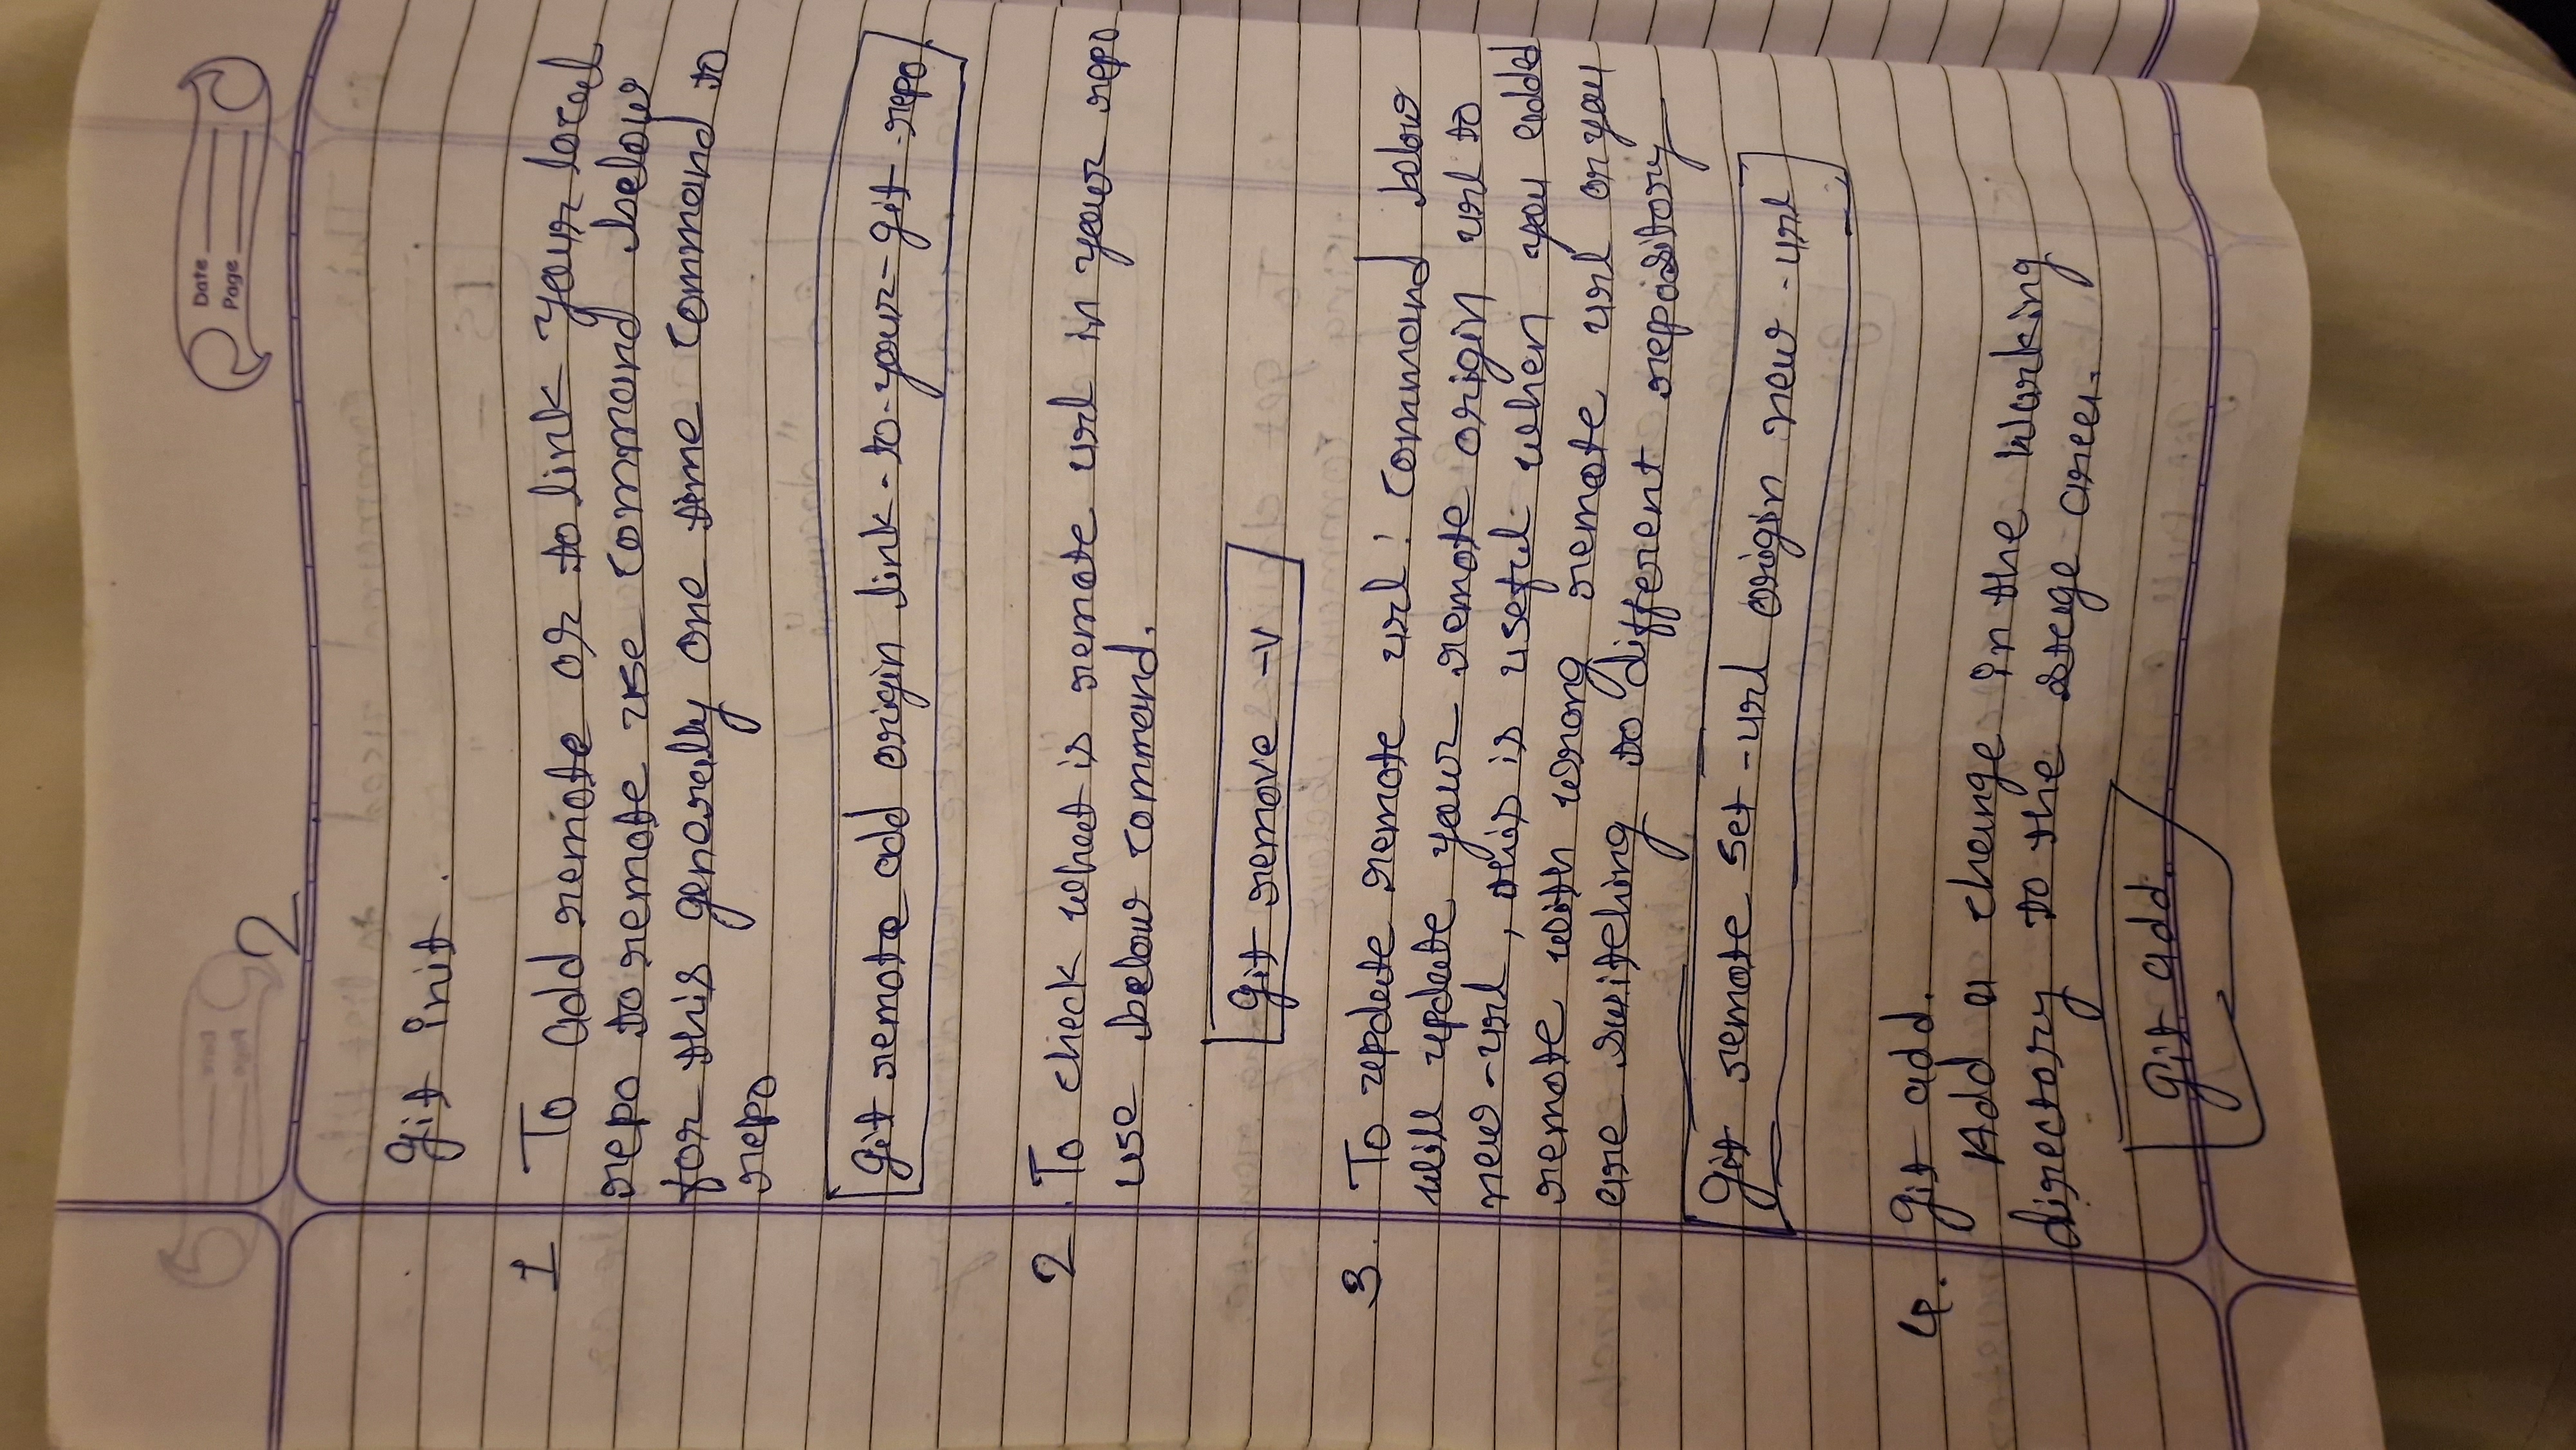 2
Date
Page
git init.
1 To add remote or to link your local
repo to remote use command below
for this generally one time command to
repo
git remote add origin link-to-your-git-repo.
2. To check what is remote url in your repo
use below command.
git remove -v
3. To update remote url: command below
will update your remote origin url to
new-url, this is useful when you added
remote with wrong remote url or you
are switching to different repository
git remote set-url origin new-url
4. git add.
Add a change in the working
directory to the stage area.
git add.